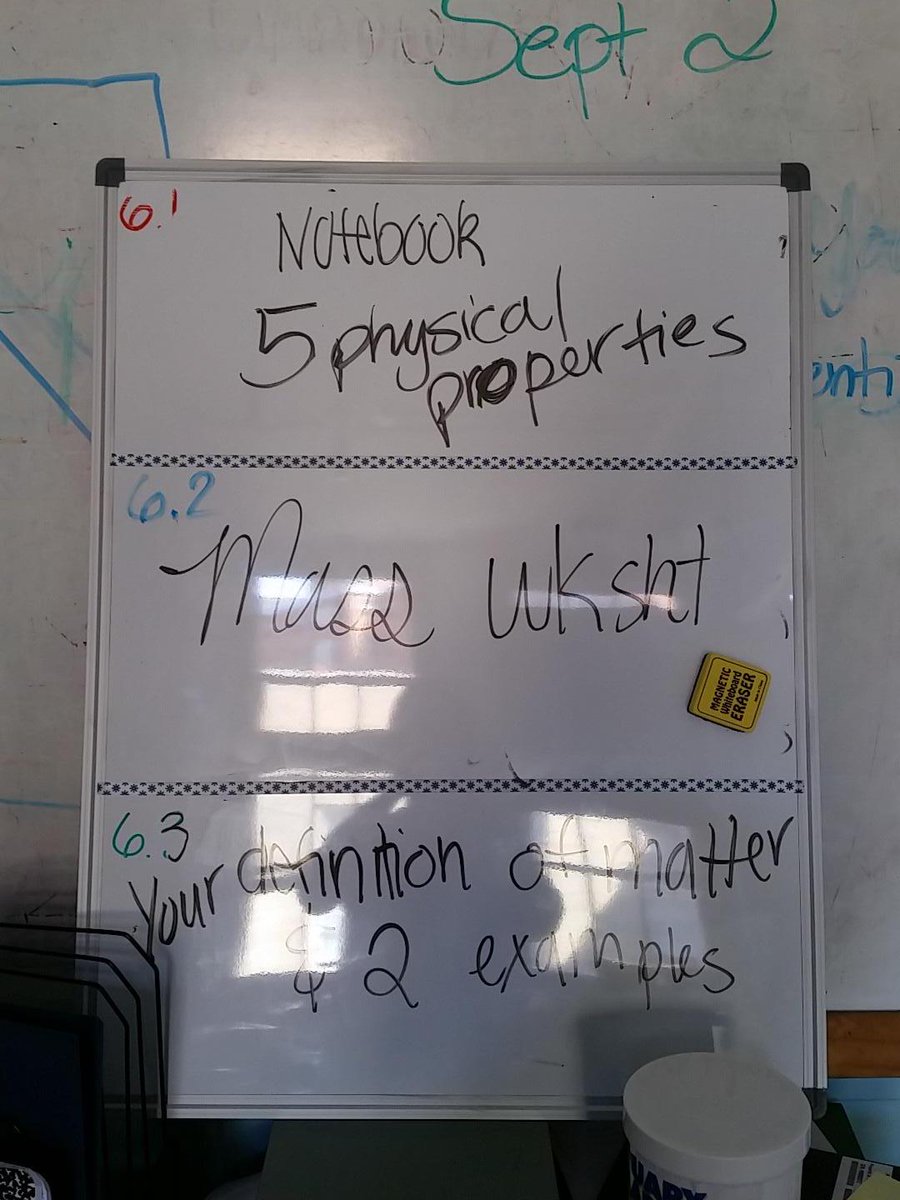 Sept 2
6.1
Notebook
5 physical
properties
6.2
Mass wksht
MAGNETIC
Whiteboard
ERASER
6.3
Your definition of matter
& 2 examples